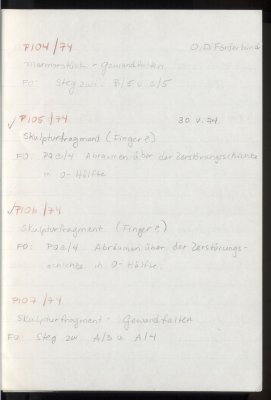 P104/74 O.D. Förderband
Marmorstück - Gewandfalten
FO: Steg zwi. B/5 u. C/5
✓ P105/74 30.V.74
Skulpturfragment (Finger?)
FO: PQa/4 Abräumen über der Zerstörungsschichte
in O-Hälfte
✓ P106/74
Skulpturfragment (Finger?)
FO: PQa/4 Abräumen über der Zerstörungs-
schichte in O-Hälfte.
P107/74
Skulpturfragment - Gewandfalten
FO: Steg zw A/3 u A/4